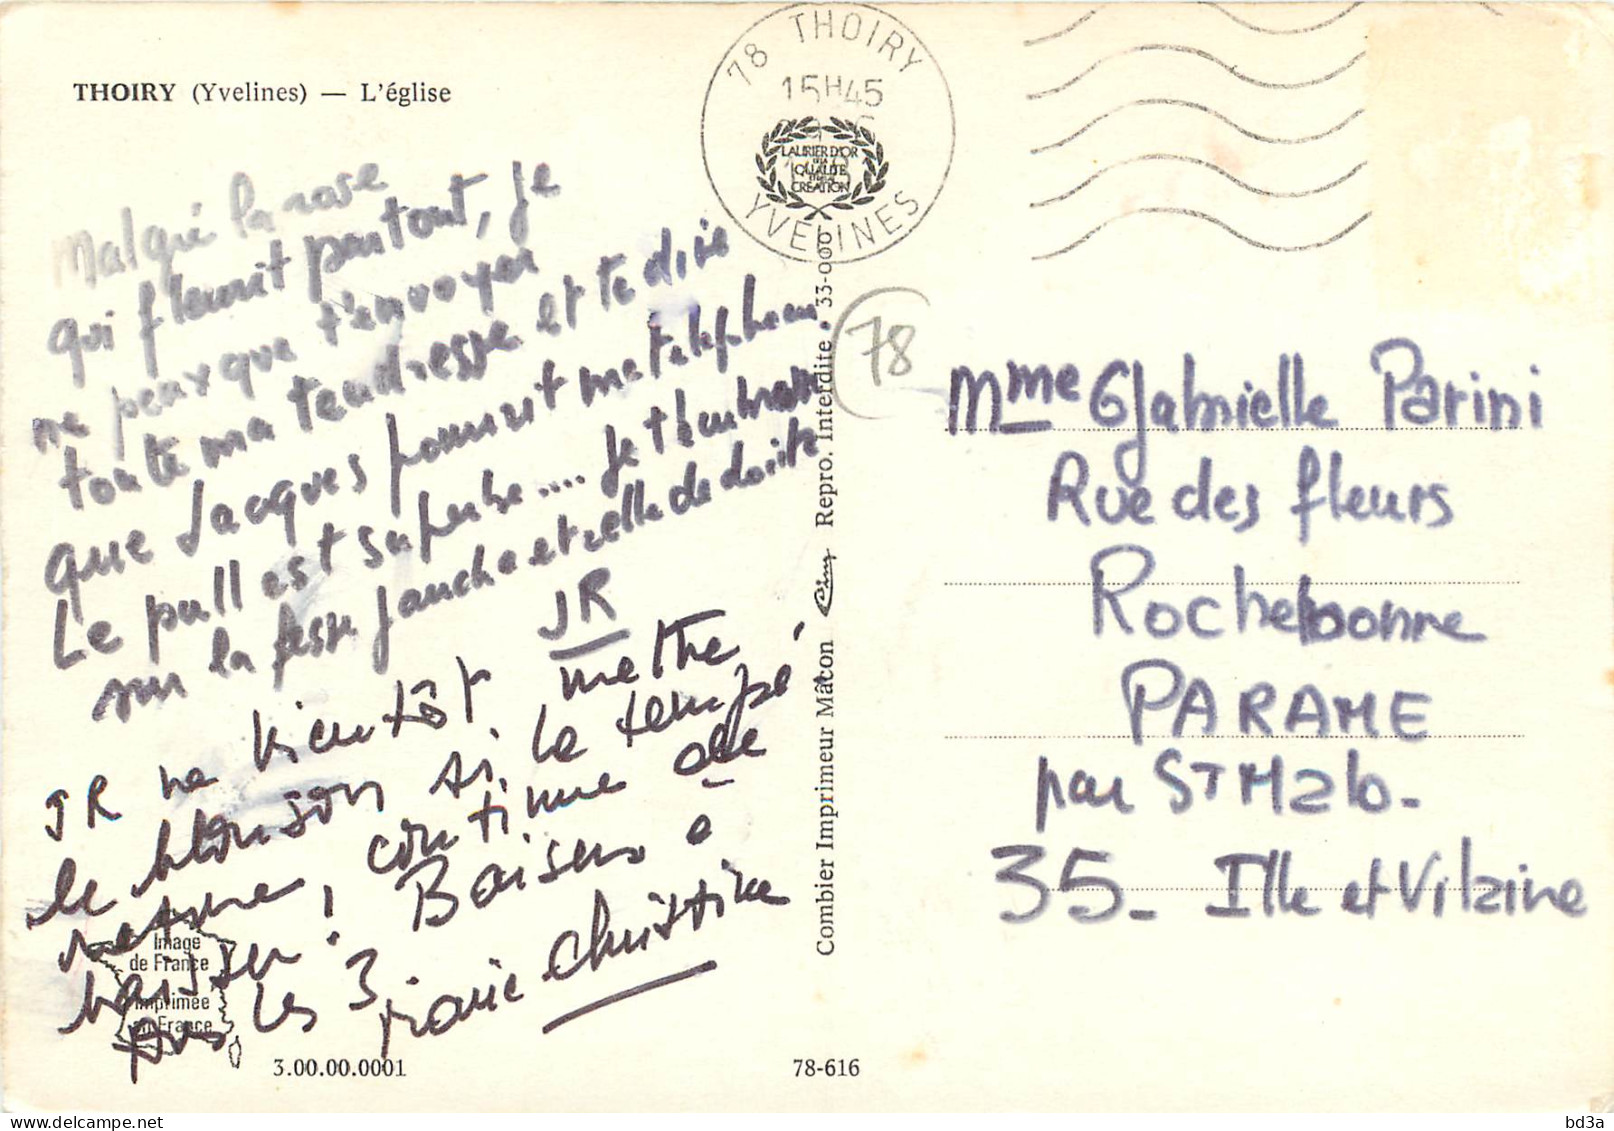 THOIRY (Yvelines) — L'église
78 THOIRY
15H45
YVELINES
LAURIER D'OR
DE LA
QUALITE
CREATION
Malgré la rose
qui fleurit partout, je
ne peux que t'envoyer
toute ma tendresse et te dire
que Jacques pourrit me telephoner
Le pull est superbe.... Je t'embrasse
sur la fesse gauche et celle de droite
JR
JR va bientôt mettre
le blouson si la tempé
rature, continue de
baisser! Baisers à
les 3
Marie Christine
Image
de France
Imprimée
en France
3.00.00.0001
78-616
Combier Imprimeur Mâcon Cim Repro. Interdite. 33-000
78
Mme Gabrielle Parini
Rue des fleurs
Rochebonne
PARAME
par ST Malo-
35- Ille et Vilaine
delcampe.net
bd3a